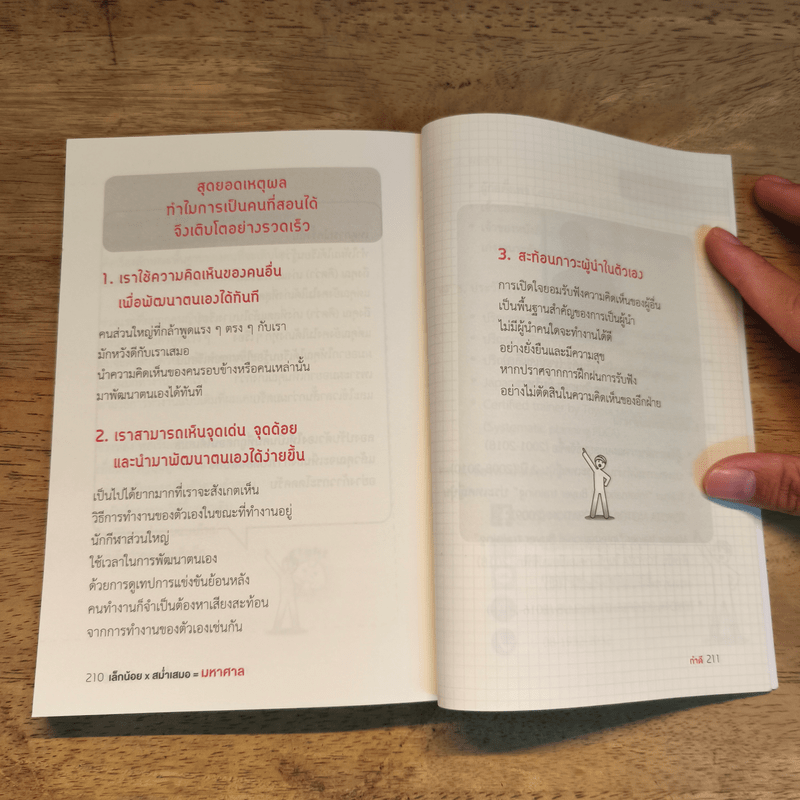 สุดยอดเหตุผล
ทำไมการเป็นคนที่สอนได้
จึงเติบโตอย่างรวดเร็ว
1. เราใช้ความคิดเห็นของคนอื่น
เพื่อพัฒนาตนเองได้ทันที
คนส่วนใหญ่ที่กล้าพูดแรง ๆ ตรง ๆ กับเรา
มักหวังดีกับเราเสมอ
นำความคิดเห็นของคนรอบข้างหรือคนเหล่านั้น
มาพัฒนาตนเองได้ทันที
2. เราสามารถเห็นจุดเด่น จุดด้อย
และนำมาพัฒนาตนเองได้ง่ายขึ้น
เป็นไปได้ยากมากที่เราจะสังเกตเห็น
วิธีการทำงานของตัวเองในขณะที่ทำงานอยู่
นักกีฬาส่วนใหญ่
ใช้เวลาในการพัฒนาตนเอง
ด้วยการดูเทปการแข่งขันย้อนหลัง
คนทำงานก็จำเป็นต้องหาเสียงสะท้อน
จากการทำงานของตัวเองเช่นกัน
210 เล็กน้อย x สม่ำเสมอ = มหาศาล
3. สะท้อนภาวะผู้นำในตัวเอง
การเปิดใจยอมรับฟังความคิดเห็นของผู้อื่น
เป็นพื้นฐานสำคัญของการเป็นผู้นำ
ไม่มีผู้นำคนใดจะทำงานได้ดี
อย่างยั่งยืนและมีความสุข
หากปราศจากการฝึกฝนการรับฟัง
อย่างไม่ตัดสินในความคิดเห็นของอีกฝ่าย
ทำดี 211